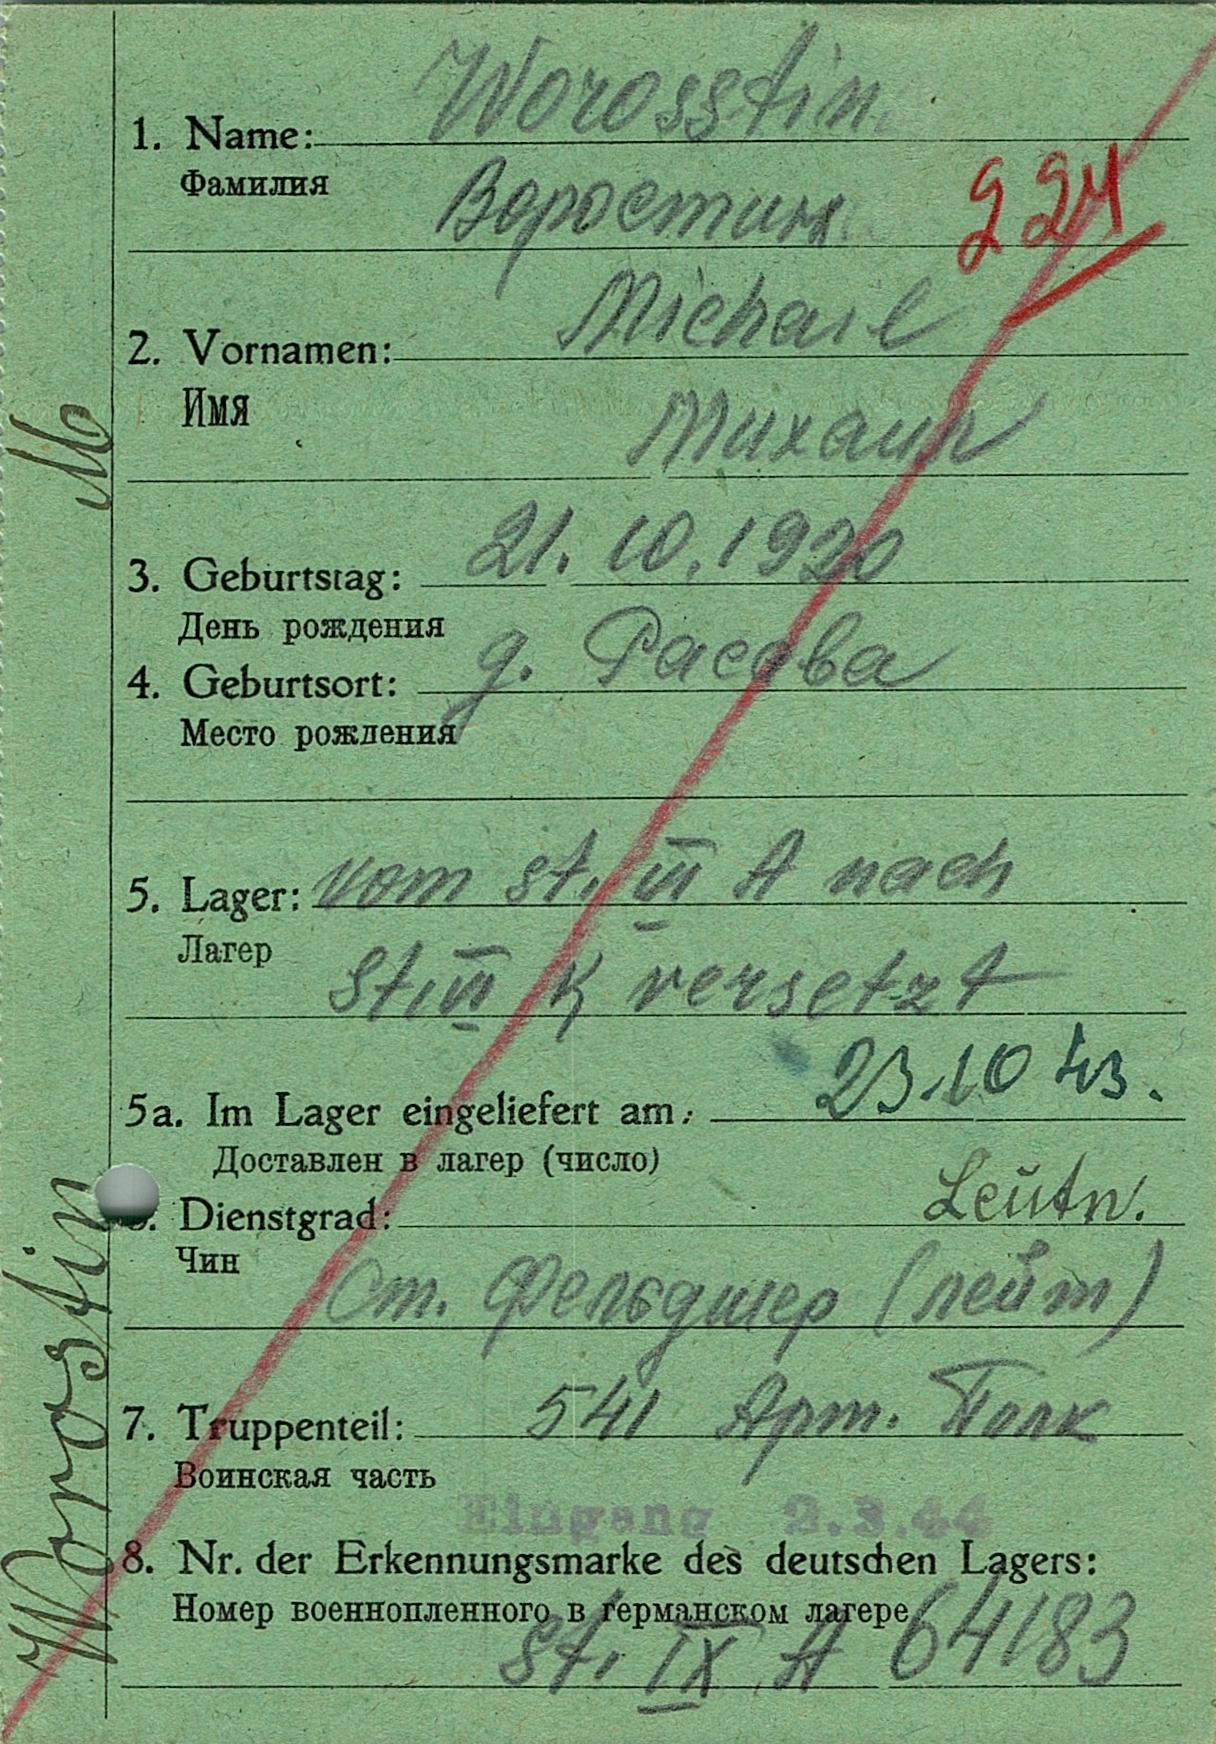 Worosstin
1. Name:
Фамилия
Воростин
224
Michail
2. Vornamen:
Имя
Михаил
3. Geburtstag: 21.10.1920
День рождения
4. Geburtsort: д. Расова
Место рождения
5. Lager: vom St. VI A nach
Лагер
St. VI K versetzt
5a. Im Lager eingeliefert am: 23.10 43.
Доставлен в лагер (число)
6. Dienstgrad: Leutn.
Чин
Ст. Фельдшер (лейт)
7. Truppenteil: 541 Арт. Полк
Воинская часть
Eingang 2.3.44
8. Nr. der Erkennungsmarke des deutschen Lagers:
Номер военнопленного в германском лагере
St. IX A 64183
Worostin